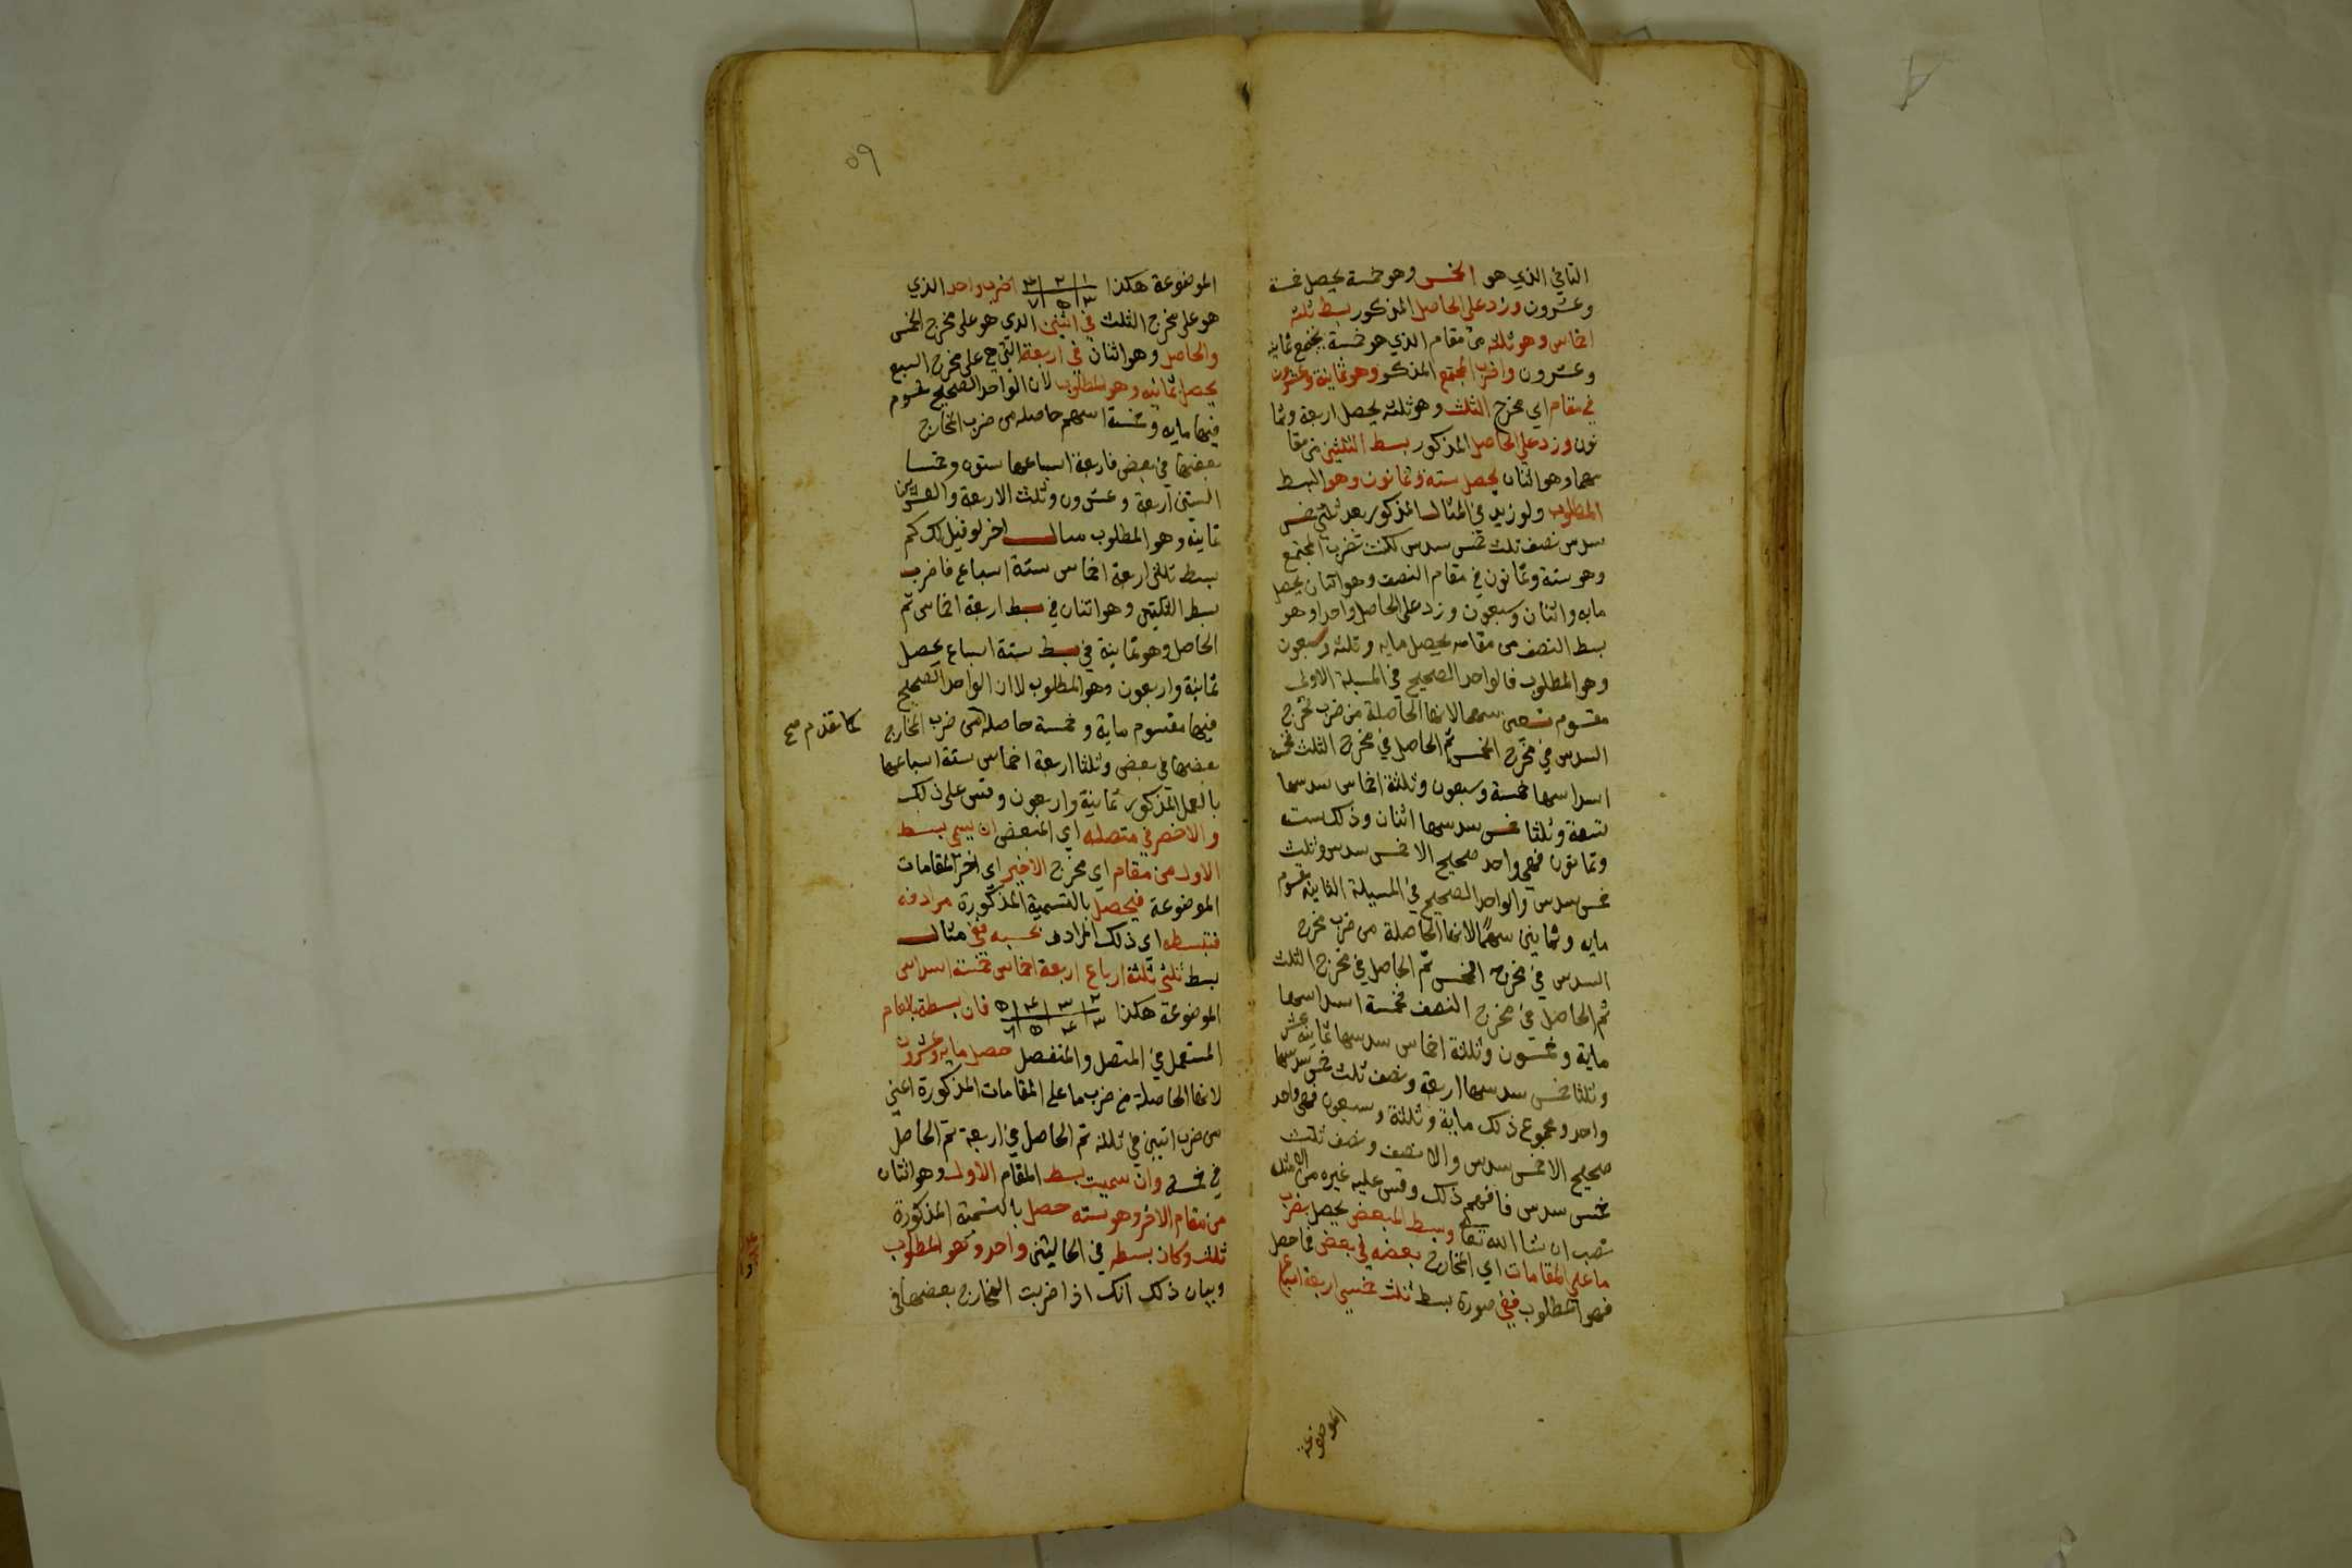 الثاني الذي هو الخمس وهو خمسة يحصل خمسة
وعشرون وزد على الحاصل المذكور بسط ثلثه
اخماس وهو ثلثه من مقام الذي هو خمسة يجتمع ثمانيه
وعشرون واضرب المجتمع المذكور وهو ثمانية وعشرون
في مقام اي مخرج الثلث وهو ثلثه يحصل اربعة وثما
نون وزد على الحاصل المذكور بسط الثلثين من مقا
مهما وهو اثنان يحصل ستة وثمانون وهو البسط
المطلوب ولو زيد في المثال المذكور بعد ثلثي خمس
سدس نصف ثلث خمس سدس لكنت تضرب المجتمع
وهو ستة وثمانون في مقام النصف وهو اثنان يحصل
مايه واثنان وسبعون وزد على الحاصل واحدا وهو
بسط النصف من مقامه يحصل مايه وثلثه وسبعون
وهو المطلوب فالواحد الصحيح في المسيلة الاولى
مقسوم تسعين سهما لانها الحاصلة من ضرب مخرج
السدس في مخرج الخمس ثم الحاصل في مخرج الثلث فخمسة
اسداسها خمسة وسبعون وثلثة اخماس سدسها
تسعة وثلثا خمس سدسها اثنان وذلك ست
وثمانون فهي واحد صحيح الا خمس سدس وثلث
خمس سدس والواحد الصحيح في المسيلة الثانيه مقسوم
مايه وثمانين سهمًا لانها الحاصلة من ضرب مخرج
السدس في مخرج الخمس ثم الحاصل في مخرج الثلث
ثم الحاصل في مخرج النصف فخمسة اسداسها
ماية وخمسون وثلثة اخماس سدسها ثمانيه عشر
وثلثا خمس سدسها اربعة ونصف ثلث خمس سدسها
واحد ومجموع ذلك ماية وثلثة وسبعون فهي واحد
صحيح الا خمس سدس والا نصف ونصف ثلث
خمس سدس فافهم ذلك وقس عليه غيره من الامثلة
تصب ان شا الله تعا وبسط المبعض يحصل بضرب
ما على المقامات اي المخارج بعضه في بعض فما حصل
فهو المطلوب ففي صورة بسط ثلث خمسي اربعة اسباع
الموضوعة
٥٩
الموضوعة هكذا ١ ٢ ٤ اضرب واحد الذي
٣ ٥ ٧
هو على مخرج الثلث في اثنين الذي هو على مخرج الخمس
والحاصل وهو اثنان في اربعة التي هي على مخرج السبع
يحصل ثمانيه وهو المطلوب لان الواحد الصحيح مقسوم
فيها مايه وخمسة اسهم حاصله من ضرب المخارج
بعضها في بعض فاربعة اسباعها ستون وخمسا
الستين اربعة وعشرون وثلث الاربعة والعشرين
ثمانيه وهو المطلوب مثال اخر لو قيل لك كم
بسط ثلثي اربعة اخماس ستة اسباع فاضرب
بسط الثلثين وهو اثنان في بسط اربعة اخماس ثم
الحاصل وهو ثمانية في بسط ستة اسباع يحصل
ثمانية واربعون وهو المطلوب لان الواحد الصحيح
فيها مقسوم ماية وخمسة حاصله من ضرب المخارج
كما تقدم صح
بعضها في بعض وثلثا اربعة اخماس ستة اسباعها
بالعمل المذكور ثمانية واربعون وقس على ذلك
والاخصر في متصله اي المبعض ان يسمى بسط
الاول من مقام اي مخرج الاخير اي اخر المقامات
الموضوعة فيحصل بالتسمية المذكورة مرادفه
فتبسطه اي ذلك المرادف بحسبه ففي مثال
بسط ثلثي ثلثة ارباع اربعة اخماس خمسة اسداس
الموضوعة هكذا ٢ ٣ ٤ ٥ فان بسطته بالعام
٣ ٤ ٥ ٦
المستعمل في المتصل والمنفصل حصل مايه وعشرون
لانها الحاصلة من ضرب ما على المقامات المذكورة اعني
من ضرب اثنين في ثلثه ثم الحاصل في اربعة ثم الحاصل
في خمسة وان سميت بسط المقام الاول وهو اثنان
من مقام الاخر وهو سته حصل بالتسمية المذكورة
ثلث وكان بسطه في الحالتين واحد وهو المطلوب
وبيان ذلك انك اذا ضربت المخارج بعضها في